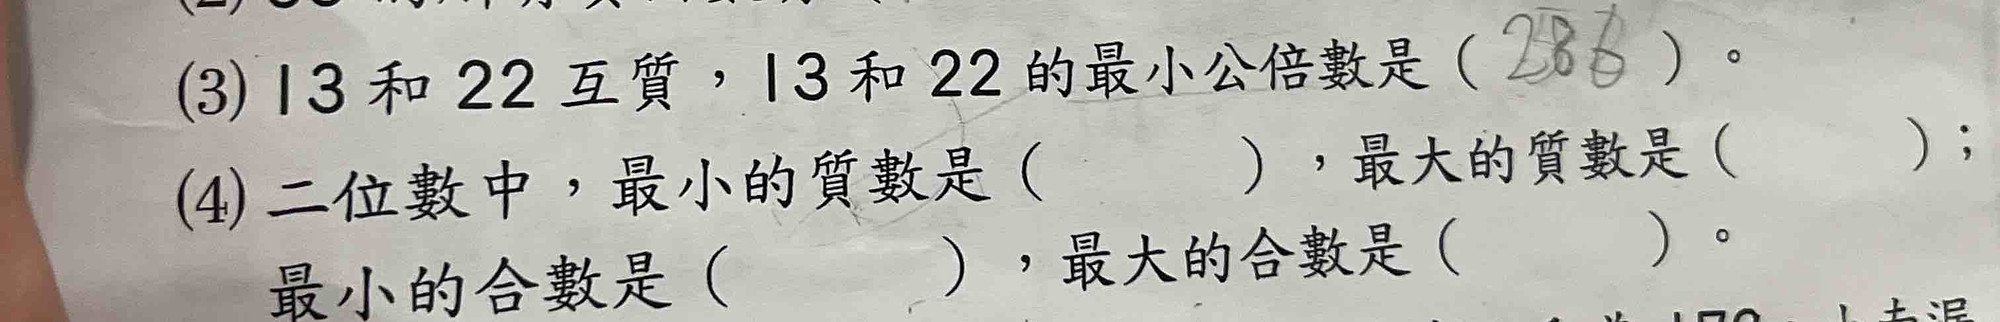 (3) 13 和 22 互質，13 和 22 的最小公倍數是（ 286 ）。
(4) 二位數中，最小的質數是（　　），最大的質數是（　　）；
最小的合數是（　　），最大的合數是（　　）。